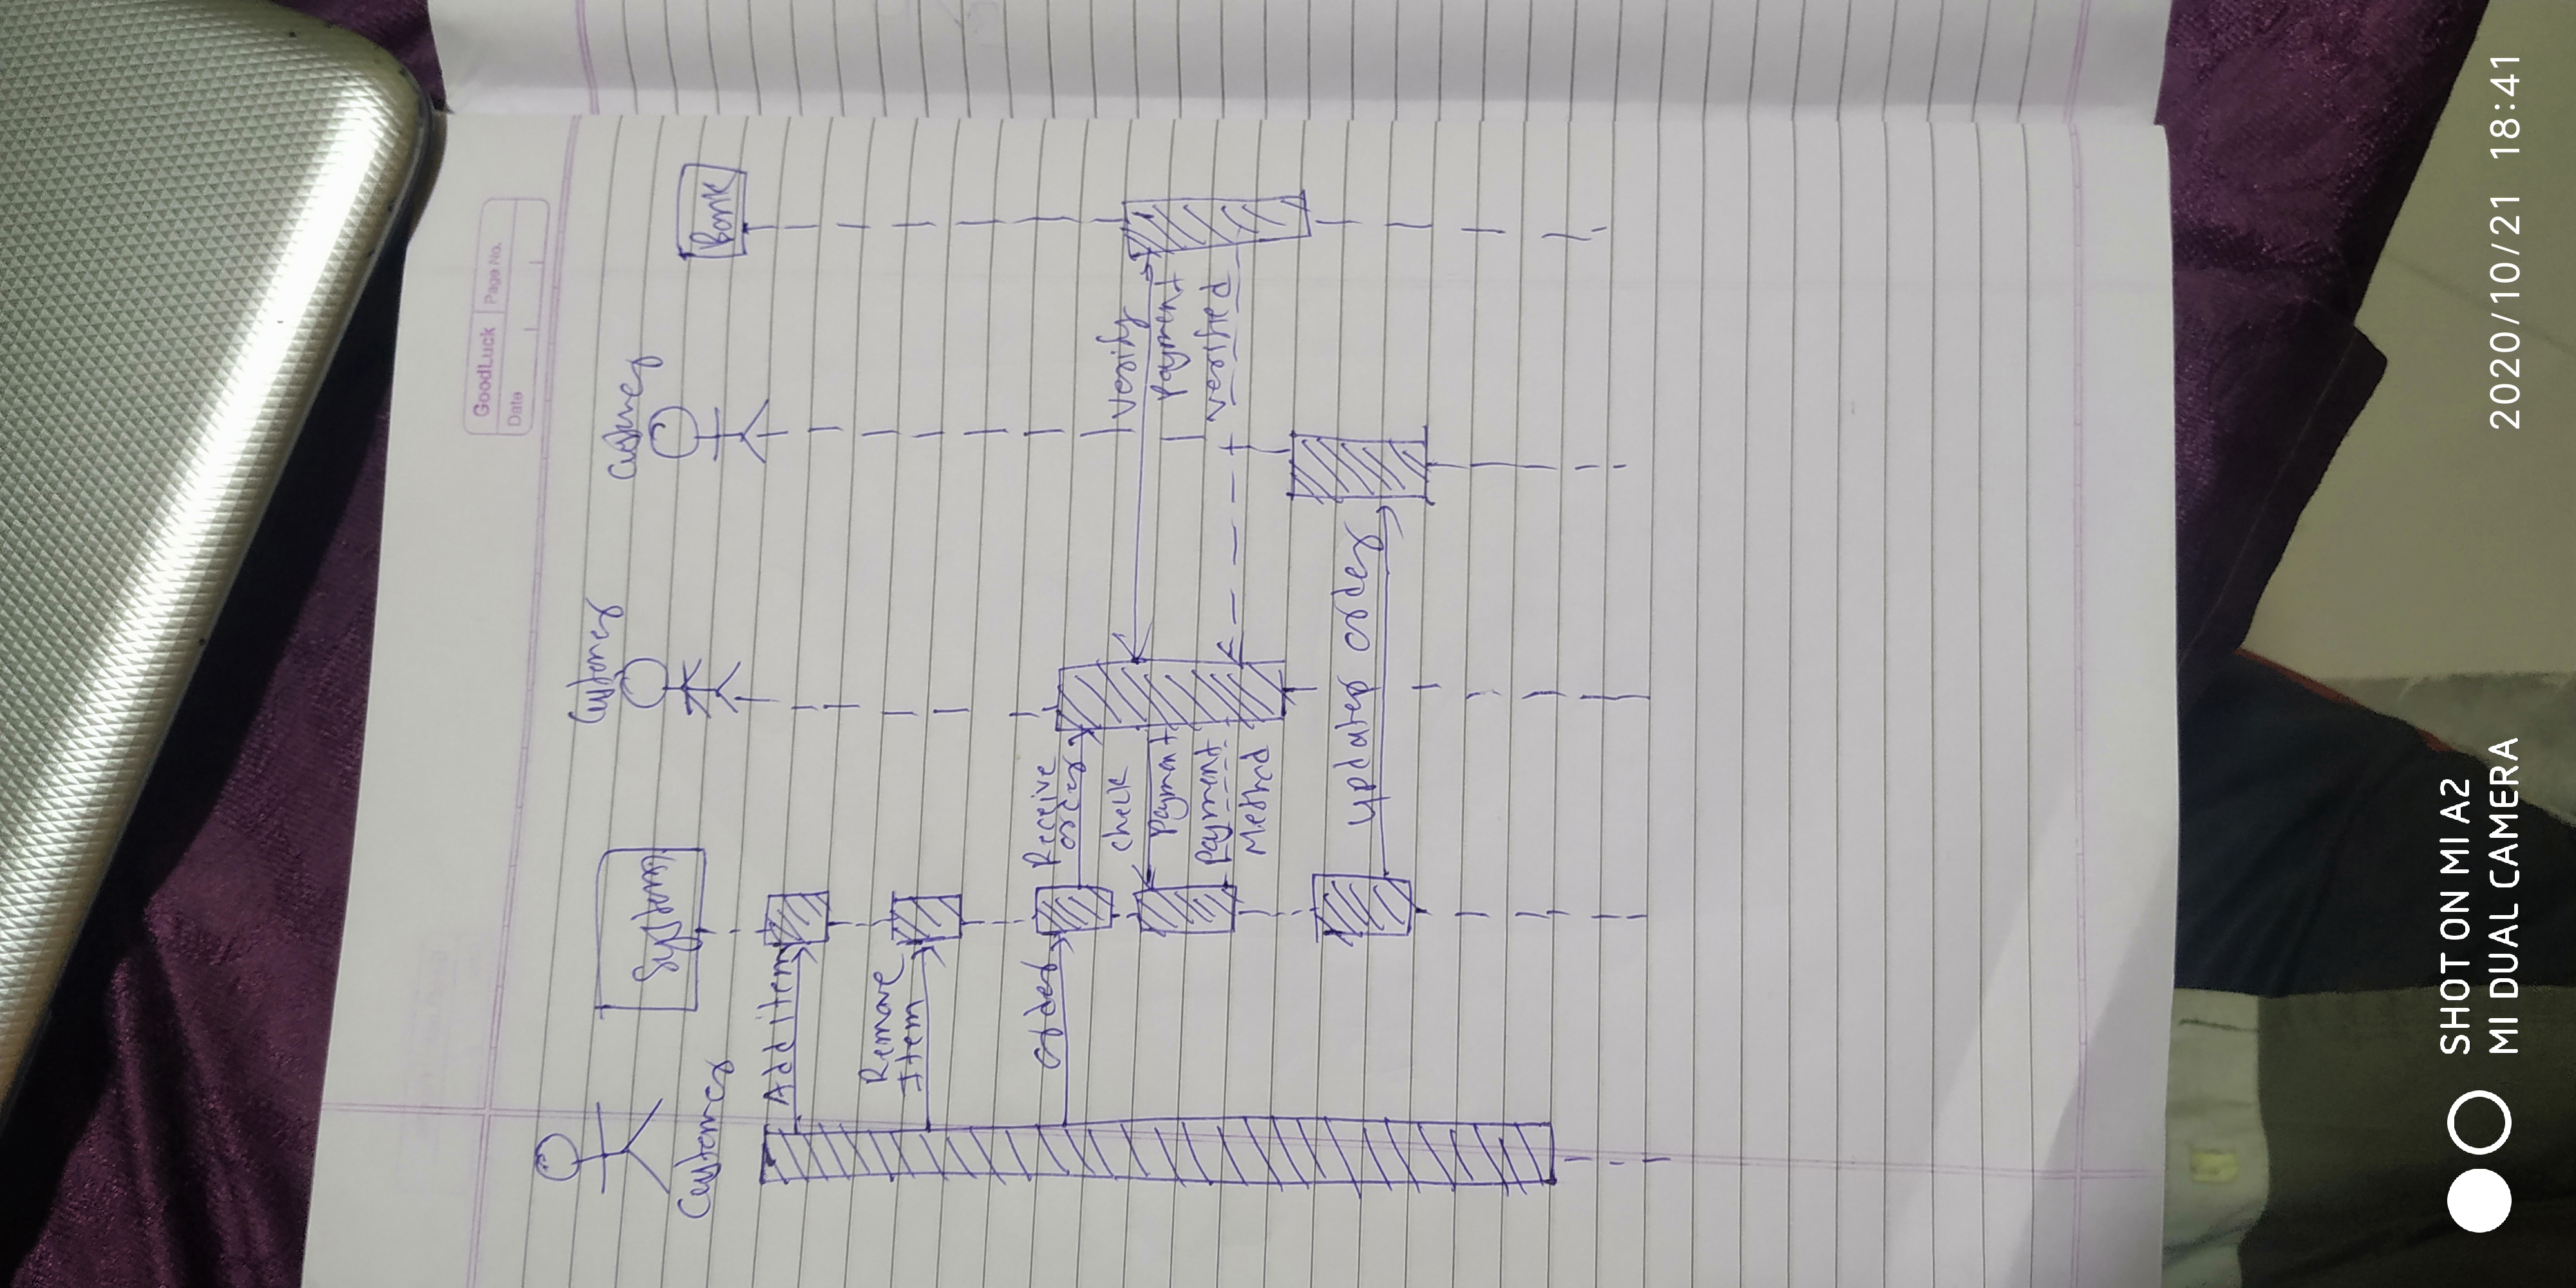 GoodLuck Page No.
Date
Customer
Customer
System
Customer
Bank
Add item
Remove
Item
order
Receive
order
check
verify
payment
payment
payment
verified
Method
updated order
SHOT ON MI A2
MI DUAL CAMERA
2020/10/21 18:41